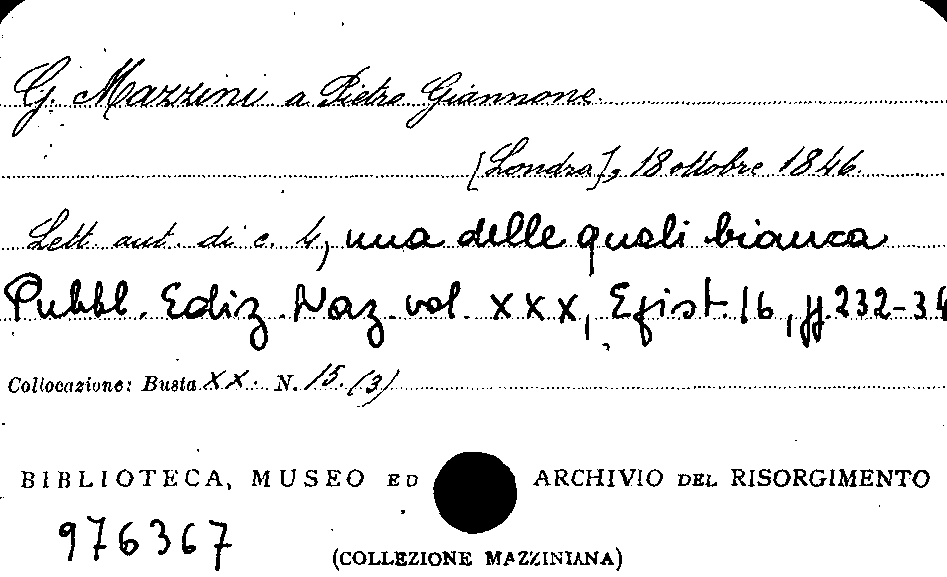 G. Mazzini a Pietro Giannone.
[Londra], 18 ottobre 1846.
Lett. aut. di c. 4, una delle quali bianca
Pubbl. Ediz. Naz. vol. XXX, Epist. 16, pp. 232-34
Collocazione: Busta XX. N. 15. (3)
BIBLIOTECA, MUSEO ED ARCHIVIO DEL RISORGIMENTO
976367
(COLLEZIONE MAZZINIANA)